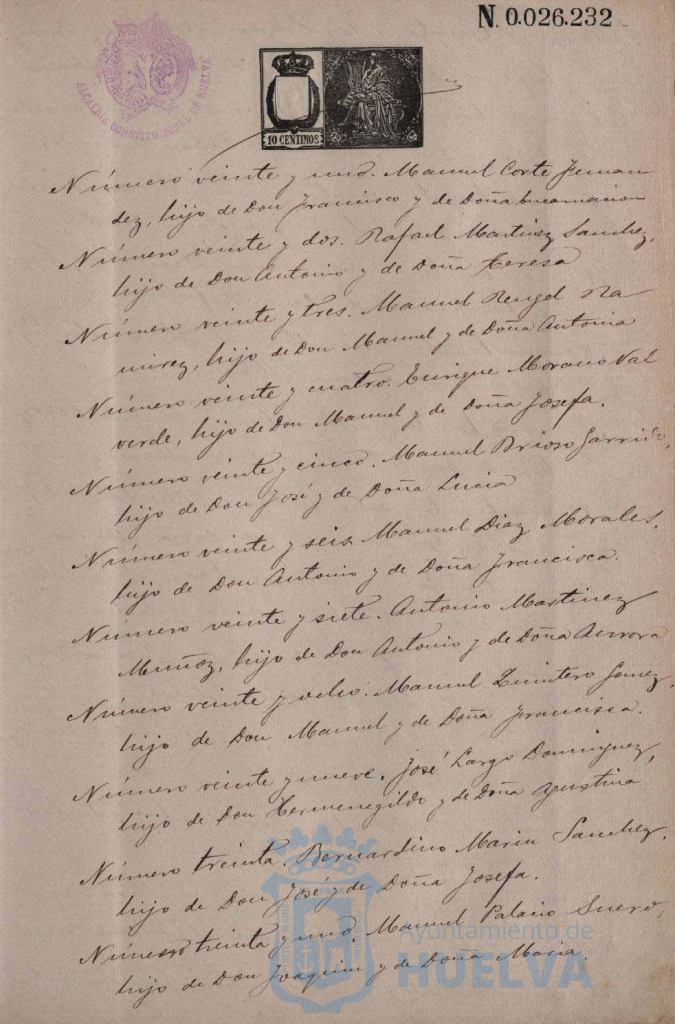 N. 0.026.232
ALCALDIA CONSTITUCIONAL DE HUELVA
10 CENTIMOS
Número veinte y uno. Manuel Corte Fernan
dez, hijo de Don Francisco y de Doña Encarnacion
Número veinte y dos. Rafael Martinez Sanchez,
hijo de Don Antonio y de Doña Teresa
Número veinte y tres. Manuel Rengel Ra
mirez, hijo de Don Manuel y de Doña Antonia
Número veinte y cuatro. Enrique Morano Val
verde, hijo de Don Manuel y de Doña Josefa.
Número veinte y cinco. Manuel Brioso Garrido,
hijo de Don José y de Doña Lucia
Número veinte y seis Manuel Diaz Morales,
hijo de Don Antonio y de Doña Francisca.
Número veinte y siete. Antonio Martinez
Muñoz, hijo de Don Antonio y de Doña Aurora
Número veinte y ocho. Manuel Quintero Gomez,
hijo de Don Manuel y de Doña Francisca.
Número veinte y nueve. José Largo Dominguez,
hijo de Don Hermenegildo y de Doña Justina
Número treinta. Bernardino Marin Sanchez,
hijo de Don José y de Doña Josefa.
Número treinta y uno. Manuel Palacio Suero,
hijo de Don Joaquin y de Doña Maria.
Ayuntamiento de
HUELVA